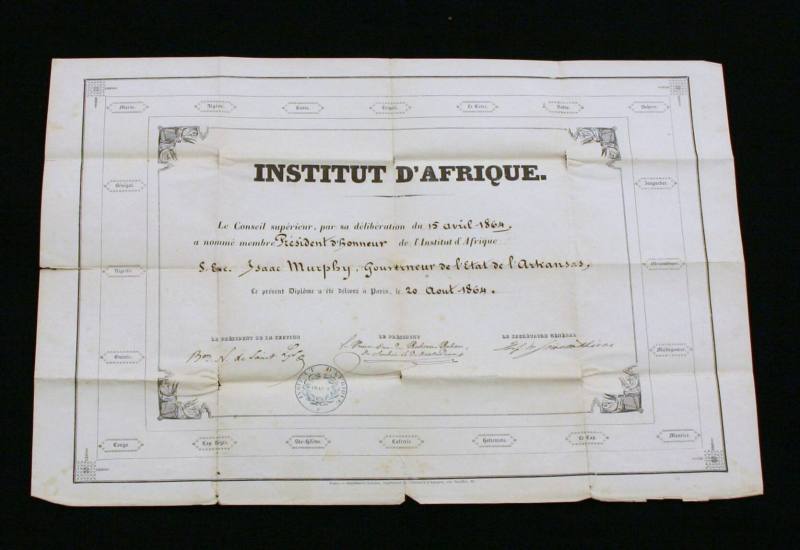 Maroc. Algérie. Tunis. Tripoli. Le Caire. Nubie.
INSTITUT D'AFRIQUE.
Sénégal. Zanguebar.
Le Conseil supérieur, par sa délibération du 15 avril 1864,
a nommé membre Président d'honneur de l'Institut d'Afrique
S. Exc. Isaac Murphy, Gouverneur de l'État de l'Arkansas,
Nigritie
Le présent Diplôme a été délivré à Paris, le 20 Aout 1864.
LE PRÉSIDENT DE LA SECTION LE PRÉSIDENT LE SECRÉTAIRE GÉNÉRAL
Guinée. Madagascar.
INSTITUT D'AFRIQUE
Congo. Cap Nègre. Ste-Hélène. Cafrerie. Hottentots. Le Cap. Maurice.